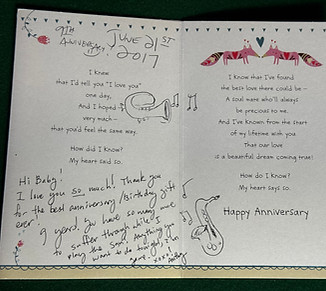 9TH
ANNIVERSARY!
JUNE 21ST
2017
I knew
that I'd tell you "I love you"
one day,
And I hoped
very much—
that you'd feel the same way.
How did I know?
My heart said so.
Hi Baby!
I love you so much! Thank you
for the best anniversary/birthday gift
ever! 9 years! You have so many more
to suffer through while I
play the Sax! Anything you
want to do tonight, I'm
game.
I know that I've found
the best love there could be—
A soul mate who'll always
be precious to me.
And I've known from the start
of my lifetime with you
That our love
is a beautiful dream coming true!
How do I know?
My heart says so.
Happy Anniversary